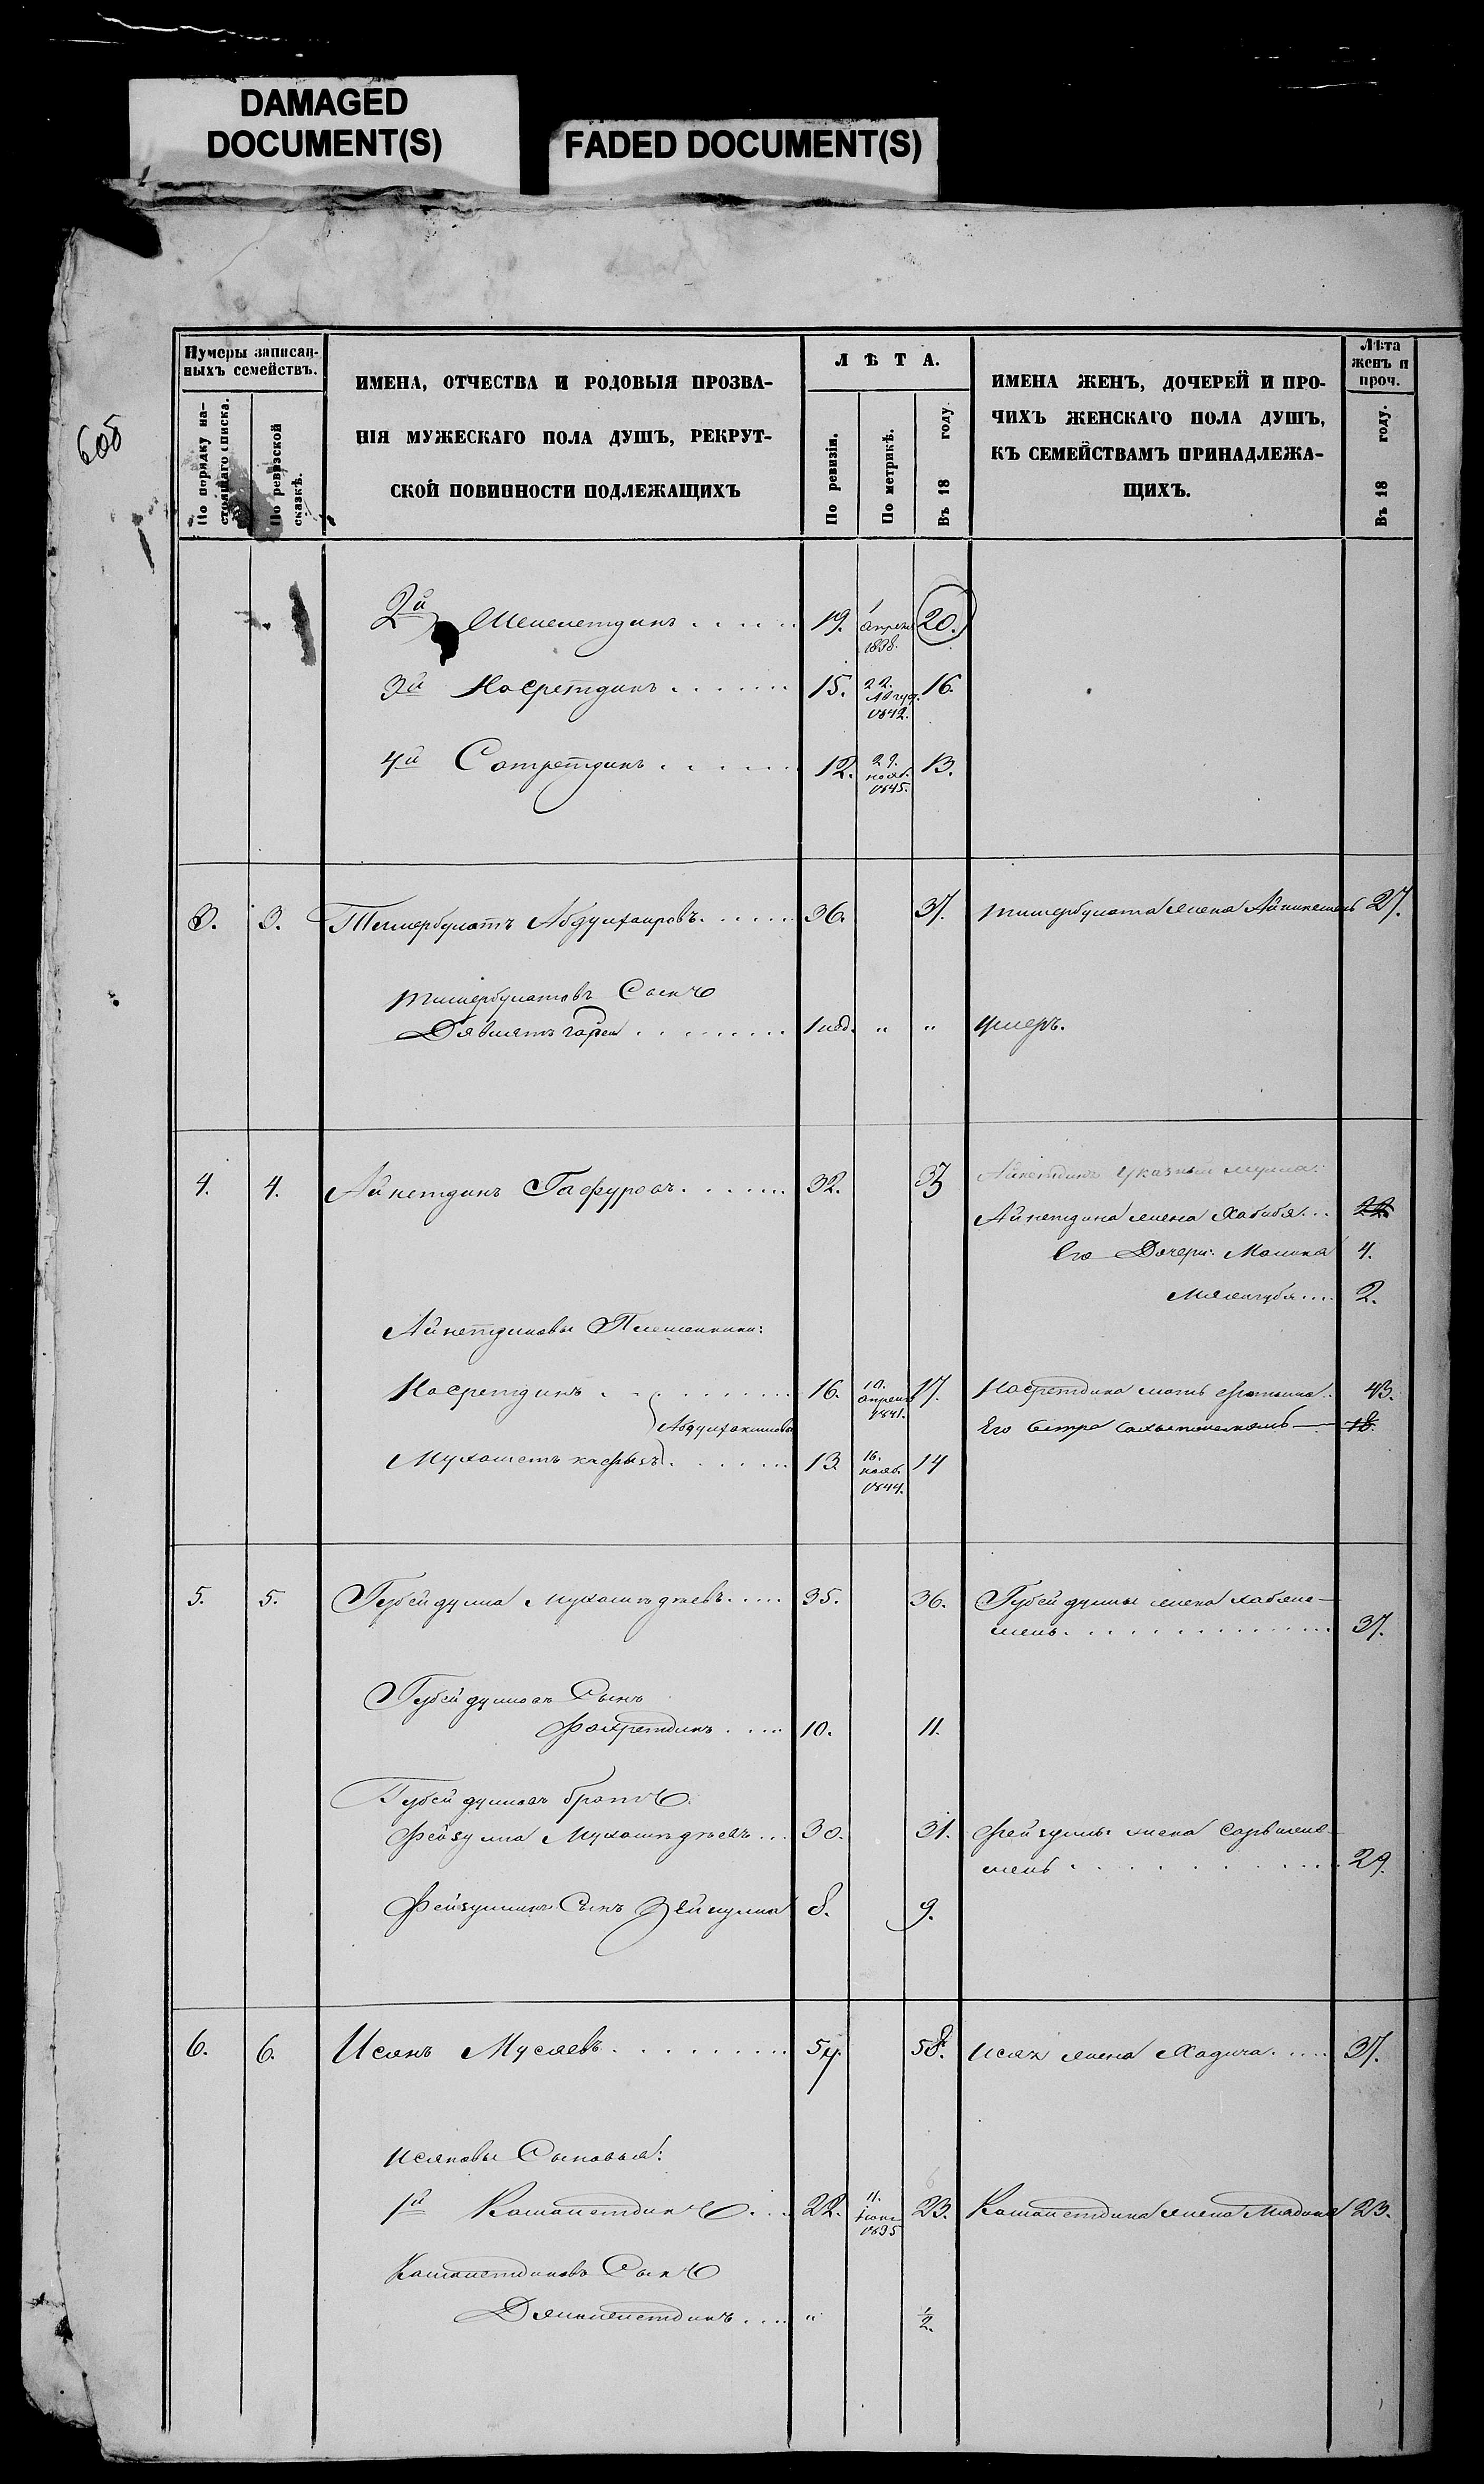 DAMAGED
DOCUMENT(S)
FADED DOCUMENT(S)
605
Нумеры записан-
ныхъ семействъ.
По порядку на-
стоящаго списка.
По ревизской
сказкѣ.
ИМЕНА, ОТЧЕСТВА И РОДОВЫЯ ПРОЗВА-
НІЯ МУЖЕСКАГО ПОЛА ДУШЪ, РЕКРУТ-
СКОЙ ПОВИННОСТИ ПОДЛЕЖАЩИХЪ
ЛѢТА.
По ревизіи.
По метрикѣ.
Въ 18 году.
ИМЕНА ЖЕНЪ, ДОЧЕРЕЙ И ПРО-
ЧИХЪ ЖЕНСКАГО ПОЛА ДУШЪ,
КЪ СЕМЕЙСТВАМЪ ПРИНАДЛЕЖА-
ЩИХЪ.
Лѣта
женъ и
проч.
Въ 18 году.
2й 19. 1 Апрель 1838. 20.
3й Насретдинъ 15. 22. Авгус. 1842. 16.
4й Сатретдинъ 12. 29. нояб. 1845. 13.
3. 3. Темербулатъ Абдулхаировъ 36. 37. Тимербулата жена 27.
Тимербулатовъ Сынъ
Давлятъ гарей 1 нед. " " умеръ.
4. 4. Айнетдинъ Гафуровъ 32. 33 Айнетдинъ указный мулла.
Айнетдина жена Хабибя 22.
Его Дочери: Малика 4.
2.
Айнетдиновы Племянники:
Насретдинъ 16. 10. апрель 1841. 17. Насретдина мать 43.
Абдулхакимовы
Его Сестра 18.
13 16. нояб. 1844. 14
5. 5. Губейдулла Мухаметджевъ 35. 36. Губейдуллы жена Хабяна-
мень 37.
Губейдулловъ Сынъ
Фахретдинъ 10. 11.
Губейдулловъ братъ
Фейзулла Мухаметджевъ 30. 31. Фейзуллы жена
мень 29.
Фейзуллинъ Сынъ Зейнулла 8. 9.
6. 6. Исянъ Мусяевъ 57. 58. Исян жена Хадича 37.
Исяновы Сыновья:
1й Камалетдинъ 22. 11. Іюня 1835 23. Камалетдина жена Мадина 23.
Камалетдиновъ Сынъ
" ½.